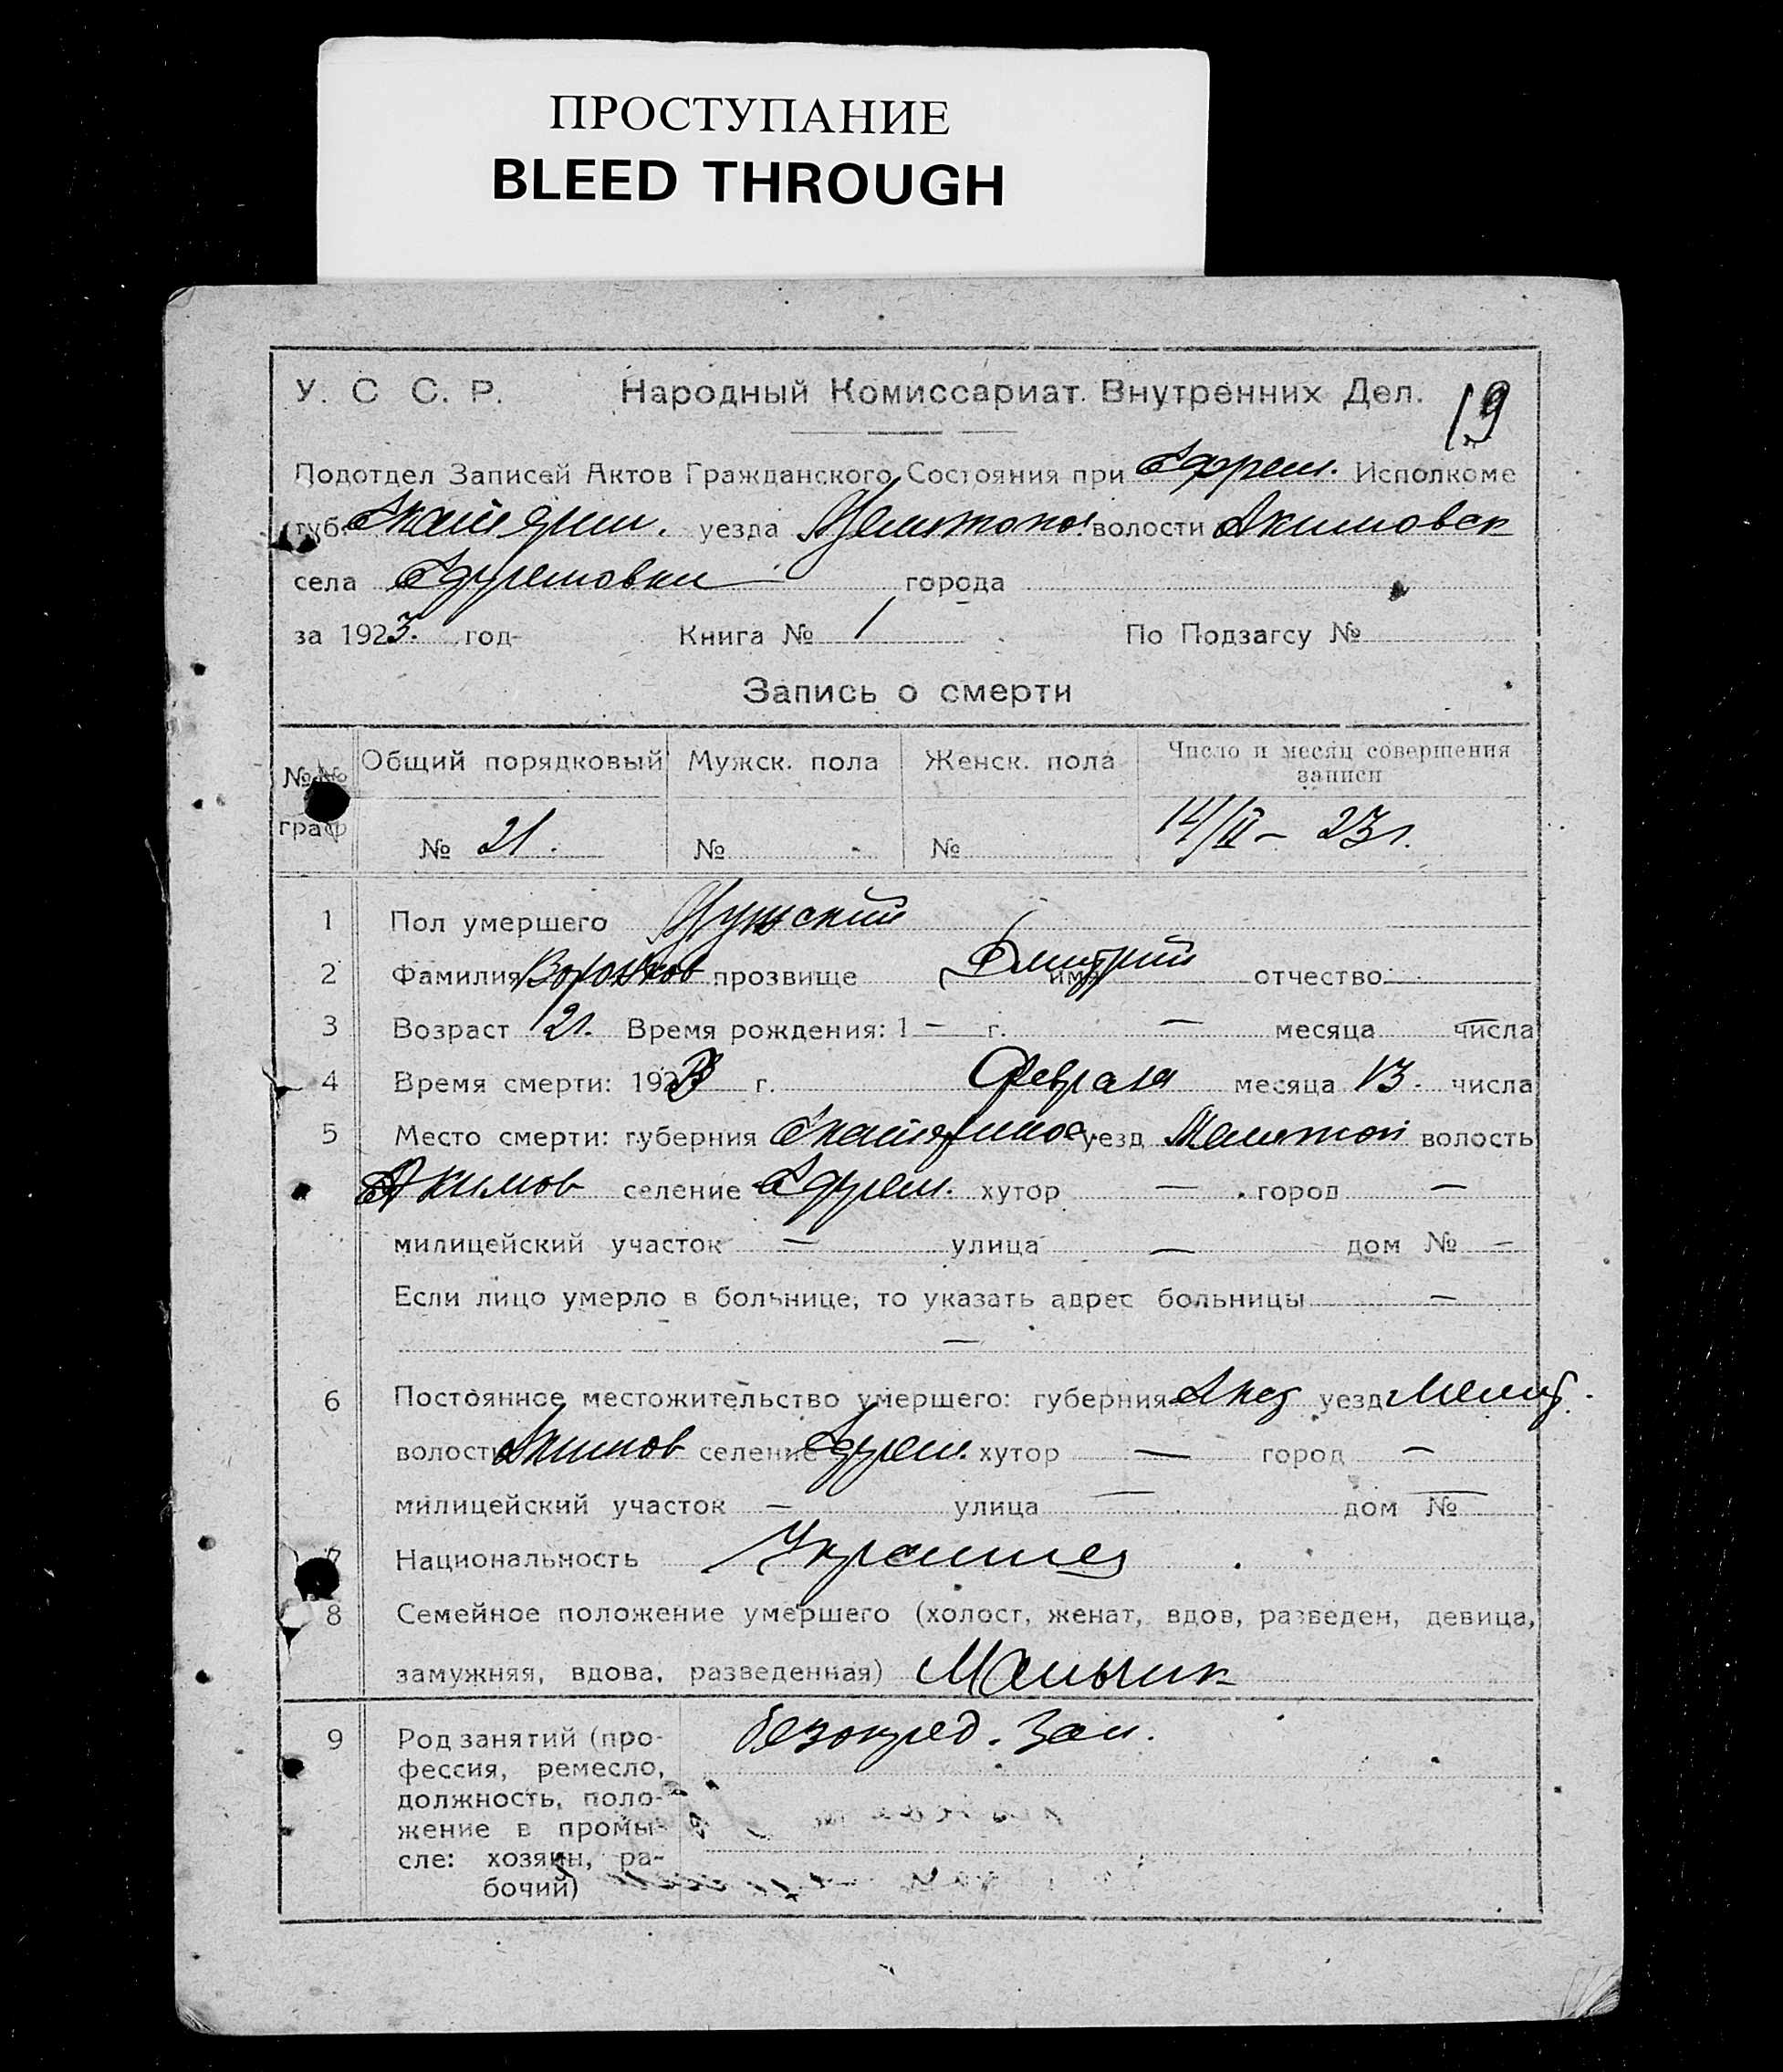 ПРОСТУПАНИЕ
BLEED THROUGH
У. С С. Р. Народный Комиссариат Внутренних Дел. 19
Подотдел Записей Актов Гражданского Состояния при Ефрем. Исполкоме
губ. Екатерин. уезда Мелитопол волости Акимовск
села города
за 1923. год Книга № 1 По Подзагсу №
Запись о смерти
№№ граф Общий порядковый Мужск. пола Женск. пола Число и месяц совершения записи
№ 21. № № 14/II – 23 г.
1 Пол умершего Мужской
2 Фамилия прозвище имя Дмитрий отчество
3 Возраст 2 г. Время рождения: 1 — г. — месяца — числа
4 Время смерти: 1923 г. Февраля месяца 13. числа
5 Место смерти: губерния Екатеринос. уезд Мелитоп волость
Акимов селение Ефрем. хутор — город —
милицейский участок — улица — дом № —
Если лицо умерло в больнице, то указать адрес больницы —
—
6 Постоянное местожительство умершего: губерния уезд Мелит.
волость Акимов селение Ефрем. хутор — город —
милицейский участок — улица — дом № —
7 Национальность Украинец
8 Семейное положение умершего (холост, женат, вдов, разведен, девица,
замужняя, вдова, разведенная) Мальчик
9 Род занятий (про- безопред. Зан.
фессия, ремесло,
должность, поло-
жение в промы-
сле: хозяин, ра-
бочий)